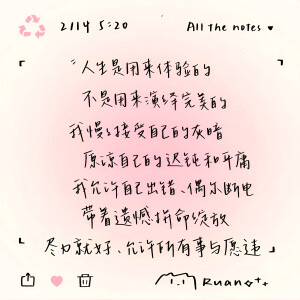 2114 5:20
All the notes ♥
"人生是用来体验的
不是用来演绎完美的
我慢慢接受自己的灰暗
原谅自己的迟钝和平庸
我允许自己出错、偶尔断电
带着遗憾拚命绽放
尽力就好、允许所有事与愿违
Ruan